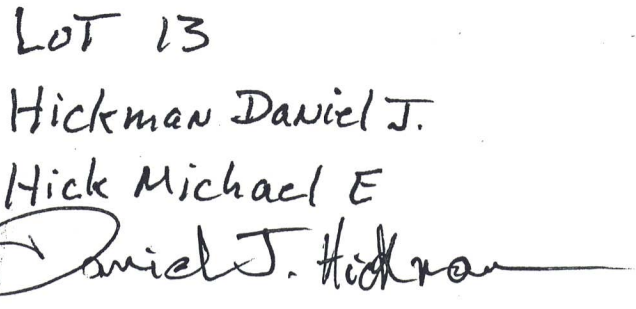 LOT 13
Hickman Daniel J.
Hick Michael E
Daniel J. Hickman